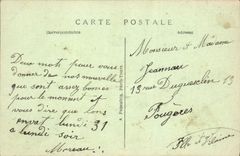 CARTE POSTALE
Correspondance
Adresse
Deux mots pour vous
donner de nos nouvelles
que sont assez bonnes
pour le moment et
vous dire que lons
lundi 31
a lundi soir
Moreau
Monsieur & Madame
Jeanneau
13 rue Duguesclin 13
Fougères
Ille & Vilaine